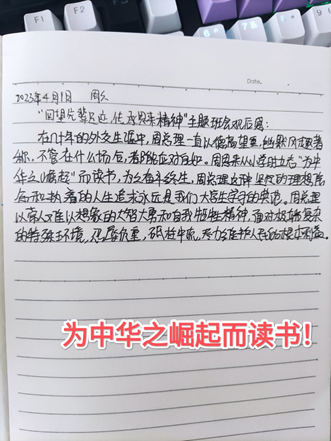 Date.
2023年4月1日 周六
"回望总理足迹,传承周来精神"主题班会观后感:
在几十年的外交生涯中,周总理一直以德高望重,幽默风趣著
称,不管在什么场合,者能应对自如。周恩来从小立志"为中
华之崛起"而读书,为之奋斗终生,周总理这种坚定的理想信
念和执着的人生追求永远是我们大学生学习的典范。周总理
以常人难以想象的大智大勇和自我牺牲精神,面对极端复杂
的特殊环境,忍辱负重,砥柱中流,尽力维护人民的
为中华之崛起而读书!